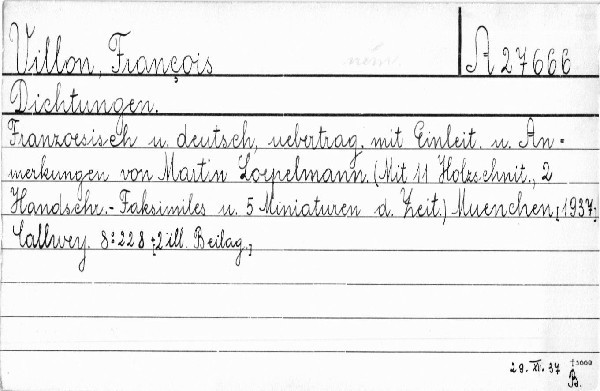 Villon, François
A 27666
Dichtungen.
Franzoesisch u. deutsch, uebertrag. mit Einleit. u. An=
merkungen von Martin Loepelmann. (Mit 11 Holzschnit., 2
Handschr.-Faksimiles u. 5 Miniaturen d. Zeit.) Muenchen, [1937.]
Callwey. 8° 228 [2 ill. Beilag.]
28. XI. 37
B.